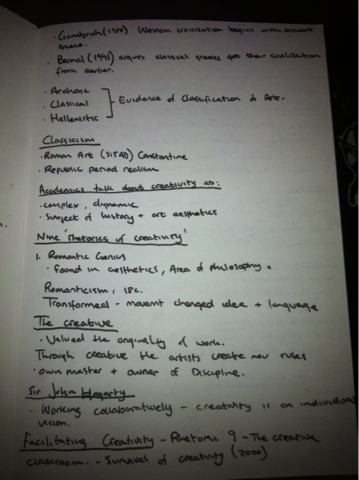 · Gombrich (1950) Western civilization begins with ancient
Greece.
· Bernal (1991) argues classical greeks got their civilization
from earlier.
· Archaic
· Classical
· Hellenistic
Evidence of Classification to Art.
Classicism
· Roman Art (315AD) Constantine
· Republic period realism
Academics talk about creativity as:
· complex, dynamic
· Subject of history + art aesthetics
Nine 'rhetorics of creativity'
1. Romantic Genius
· found in aesthetics, Area of philosophy
Romanticism, 18c.
Transformed - movemt changed idea + language
The creative
· Valued the originality of work.
Through creative the artists create new rules
· own master + owner of Discipline.
Sir John Hegarty
· Working collaboratively - creativity is an individual
vision.
Facilitating Creativity - Rhetoric 9 - The creative
classroom. - Survival of creativity (2000)